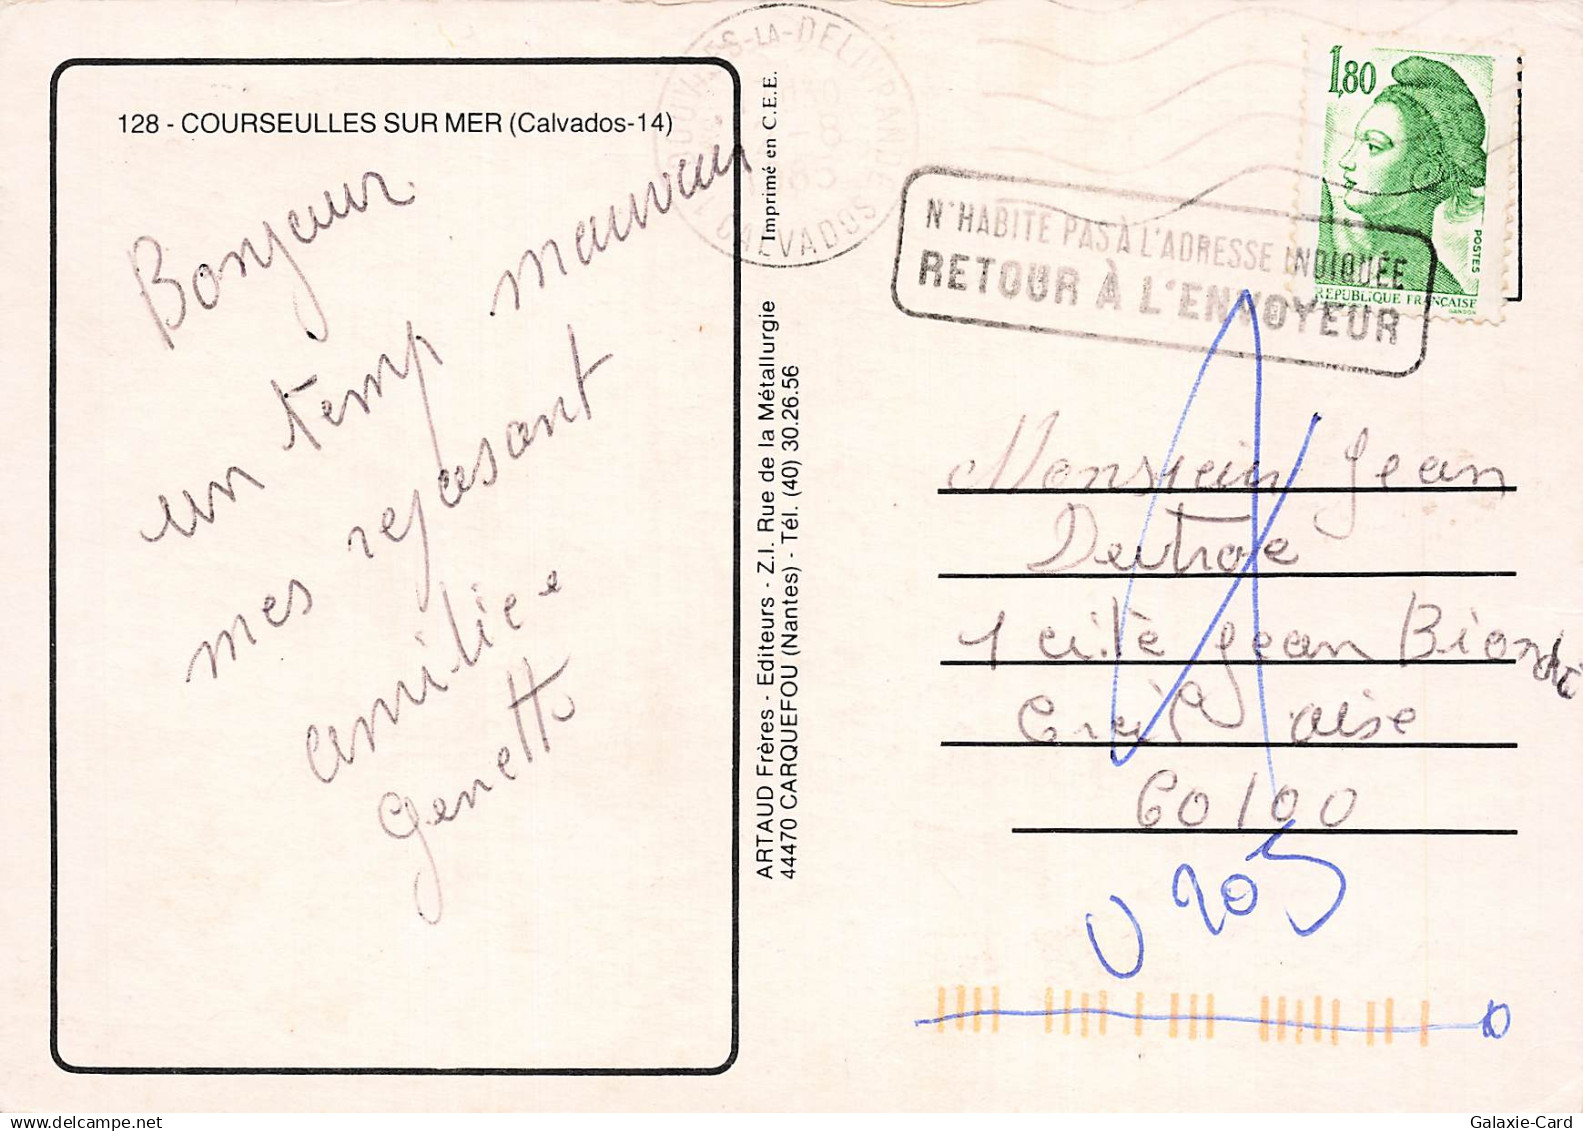 128 - COURSEULLES SUR MER (Calvados-14)
Bonjour
un temp mauvais
mes reposant
amitiée
genette
Imprimé en C.E.E.
ARTAUD Frères - Editeurs - Z.I. Rue de la Métallurgie
44470 CARQUEFOU (Nantes) - Tél. (40) 30.26.56
DOUVRES-LA-DELIVRANDE
CALVADOS
1,80
POSTES
REPUBLIQUE FRANCAISE
GANDON
N'HABITE PAS À L'ADRESSE INDIQUÉE
RETOUR À L'ENVOYEUR
Monsieur Jean
1 cité Jean Biondi
Creil oise
60100
U 205
Galaxie-Card